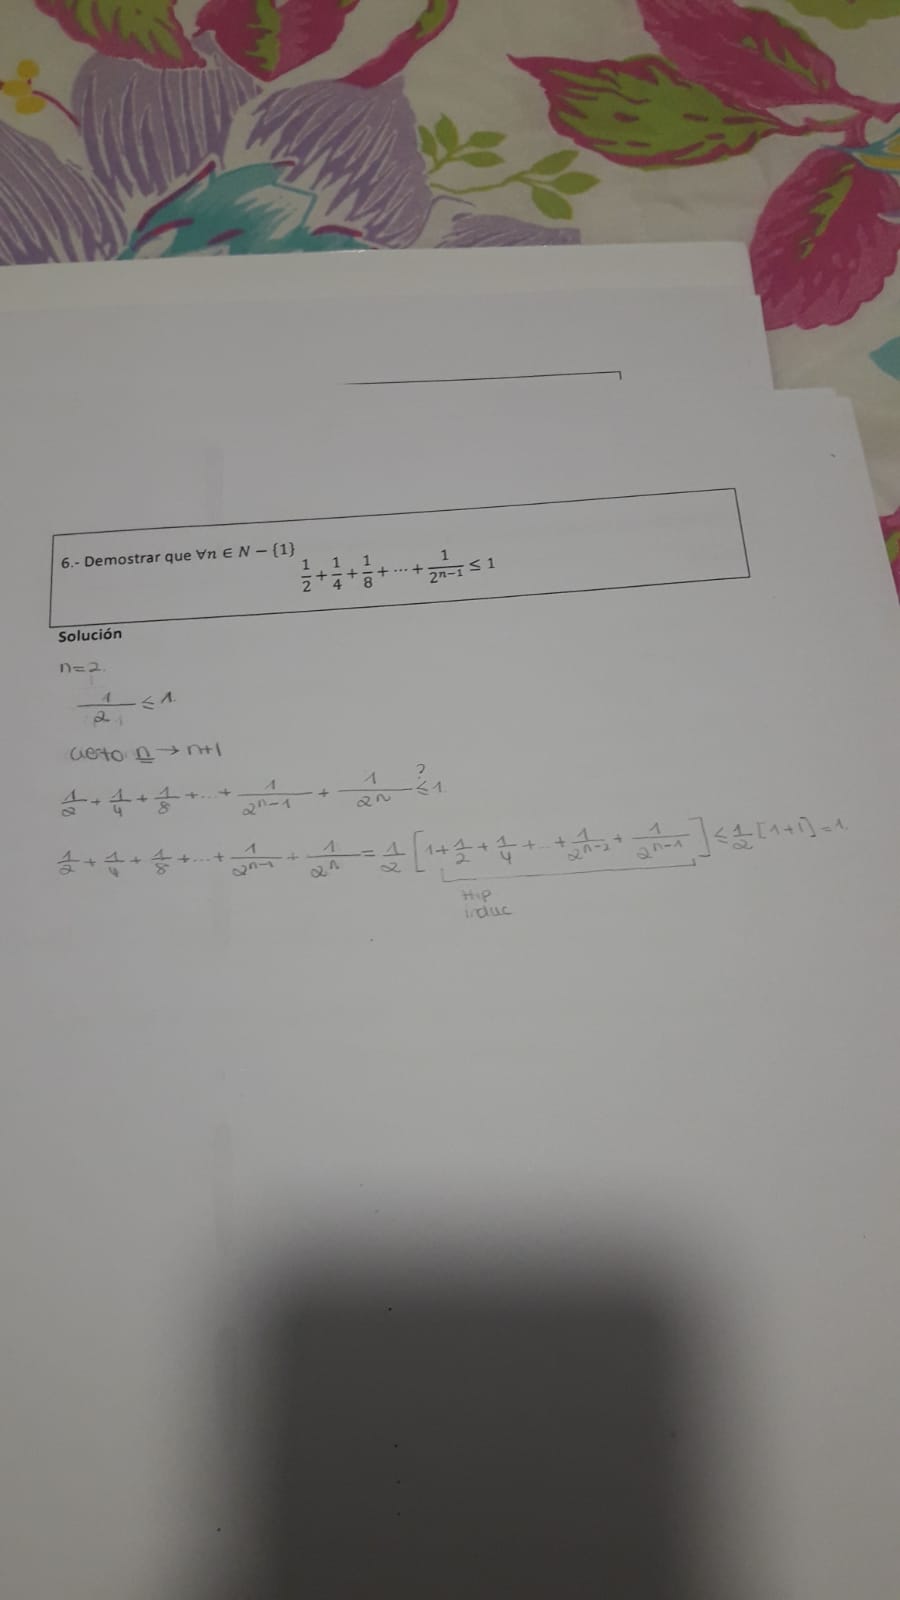 6.- Demostrar que ∀n ∈ N − {1}
1/2 + 1/4 + 1/8 + ⋯ + 1/2^(n−1) ≤ 1
Solución
n=2.
1/2 ≤ 1.
cierto n → n+1
1/2 + 1/4 + 1/8 + ... + 1/2^(n-1) + 1/2^n ≤? 1
1/2 + 1/4 + 1/8 + ... + 1/2^(n-1) + 1/2^n = 1/2 [1 + 1/2 + 1/4 + ... + 1/2^(n-2) + 1/2^(n-1)] ≤ 1/2 [1+1] = 1.
Hip
induc